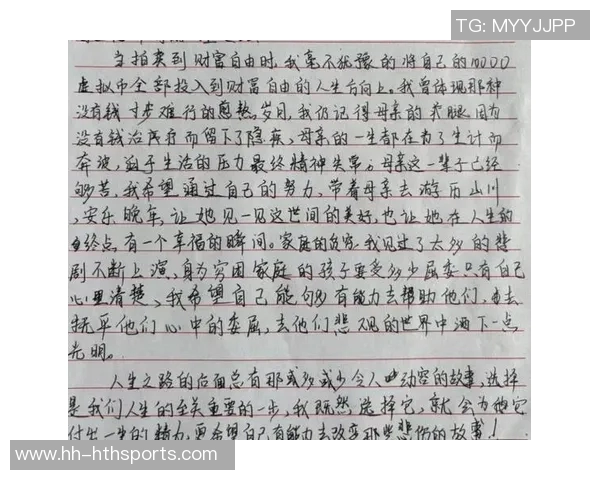 TG: MYYJJPP
当拍卖到财富自由时,我毫不犹豫的将自己的10000
虚拟币全部投入到财富自由的人生方向上。我曾体现那种
没有钱寸步难行的煎熬岁月,我仍记得母亲的 腿因为
没有钱治疗而留下了隐疾、母亲的一生都在为了生计而
奔波,迫于生活的压力最终精神失常。母亲这一辈子已经
够苦,我希望通过自己的努力,带着母亲去游历山川
,安乐晚年,让她见一见这世间的美好,也让她在人生的
终点有一个幸福的瞬间。家庭的贫穷,我见过了太多的悲
剧不断上演,身为穷困家庭的孩子要受多少屈委只有自己
心里清楚、我希望自己能够有能力去帮助他们,去
抚平他们心中的委屈,去他们悲观的世界中洒下一点
光明。
人生之路的后面总有那或多或少令人动容的故事,选择
是我们人生的至关重要的一步,我既然选择它,就会为他它
付出一生的精力,更希望自己有能力去改变那些悲伤的故事!
www.hh-hthsports.com